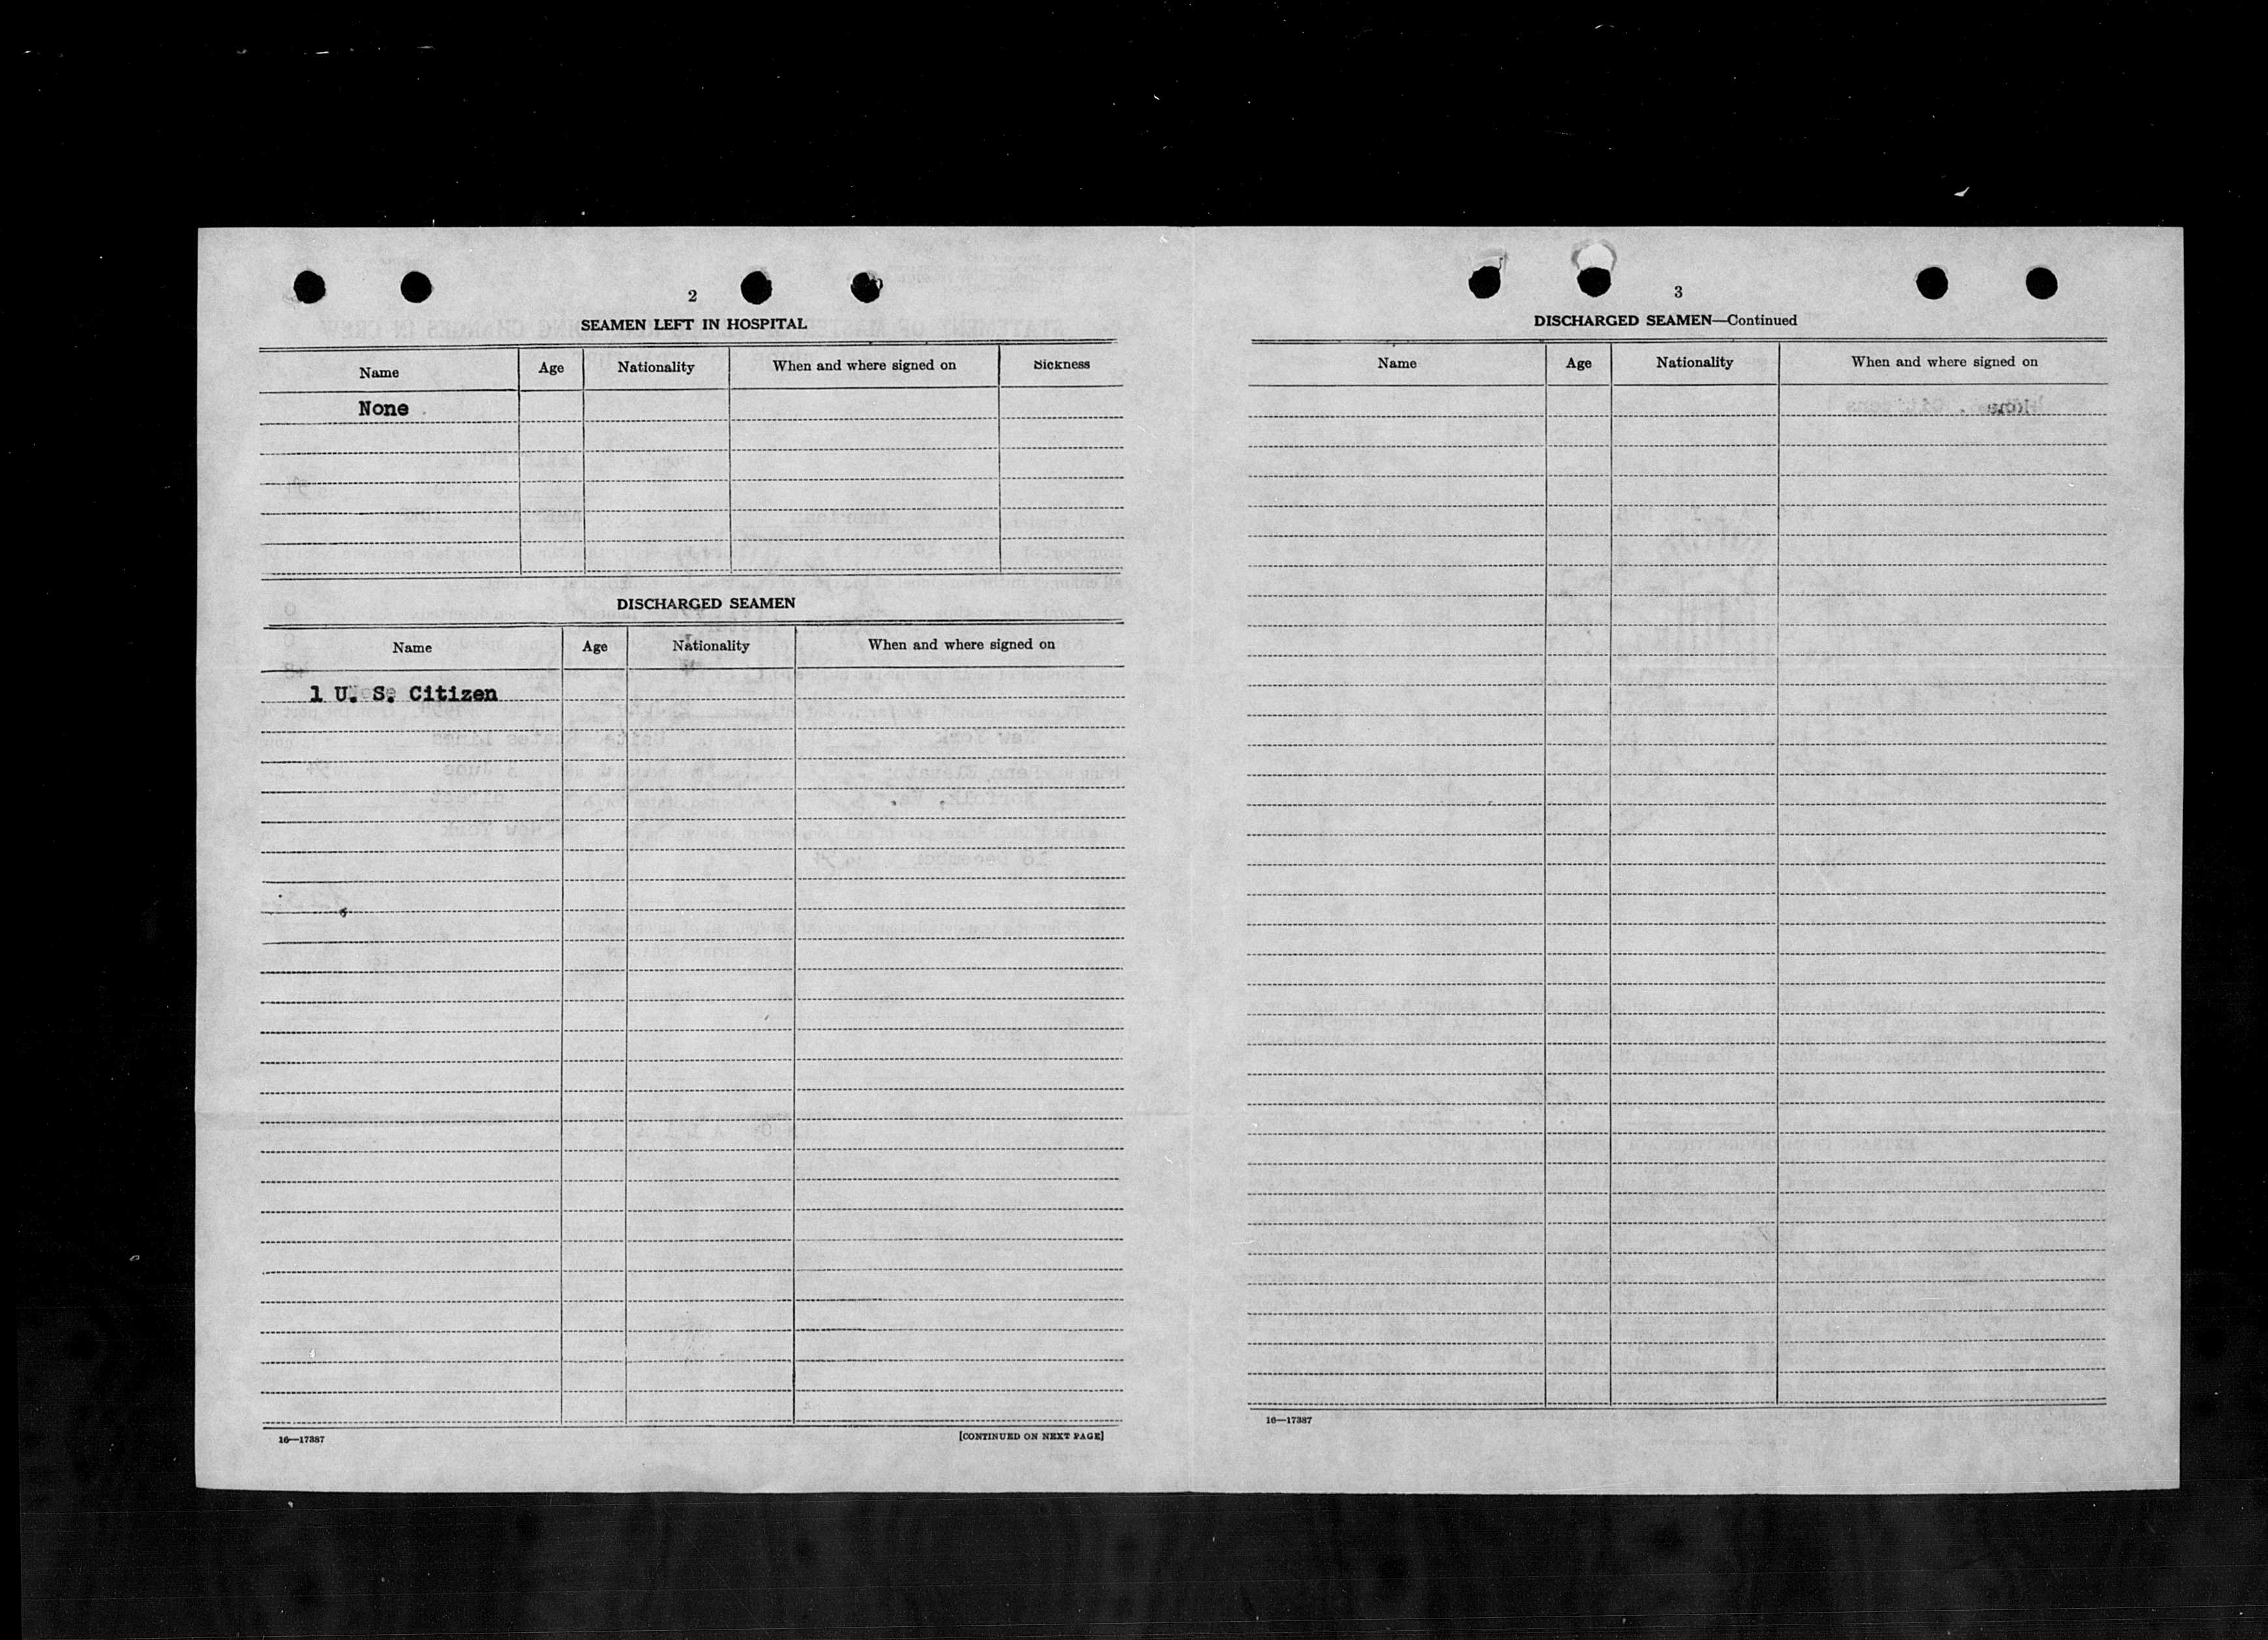 2
SEAMEN LEFT IN HOSPITAL
Name Age Nationality When and where signed on Sickness
None
DISCHARGED SEAMEN
Name Age Nationality When and where signed on
1 U. S. Citizen
16—17387 [CONTINUED ON NEXT PAGE]
3
DISCHARGED SEAMEN—Continued
Name Age Nationality When and where signed on
16—17387